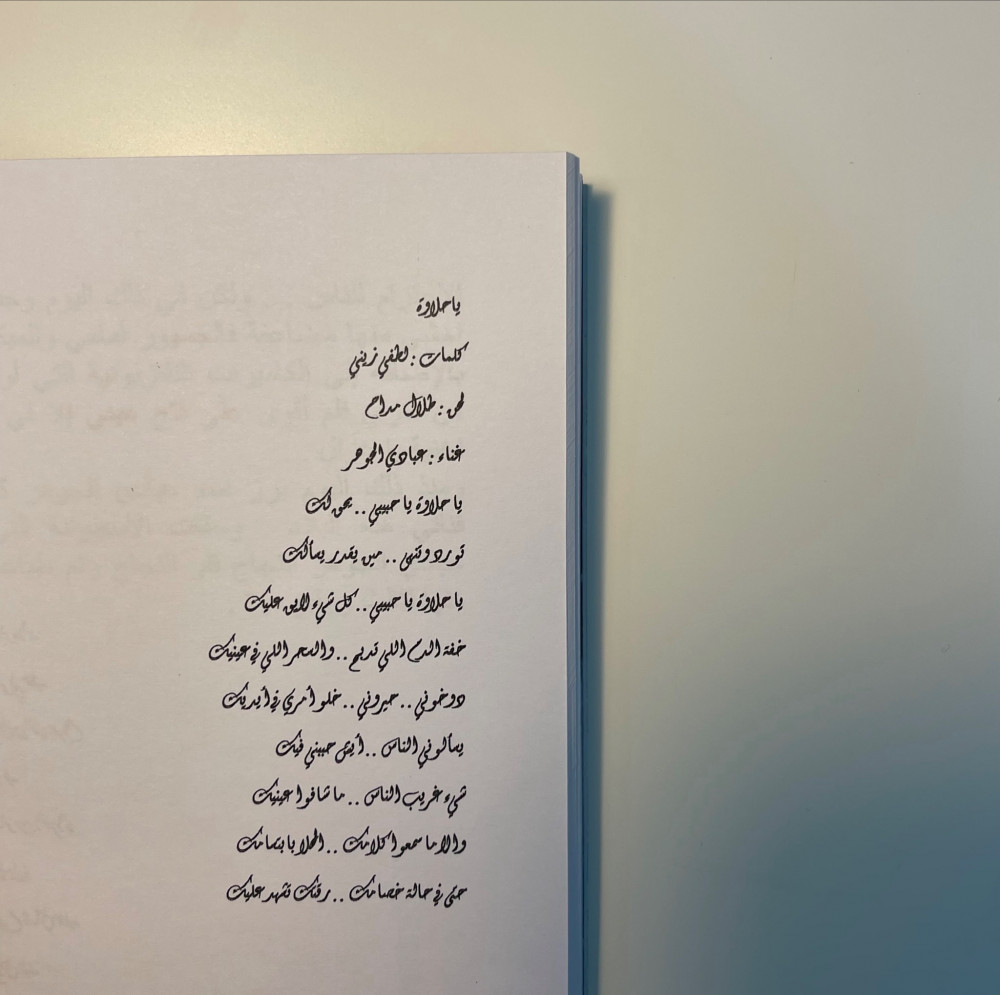 ياحلاوة
كلمات : لطفي زيني
لحن : طلال مداح
غناء : عبادي الجوهر
يا حلاوة يا حبيبي .. يحق لك
تورد وتنسى .. مين يقدر يسألك
يا حلاوة يا حبيبي .. كل شيء لايق عليك
خفة الدم اللي تدبح .. والسحر اللي في عينيك
دوخوني .. حيروني .. خلو أمري في أيديك
يسألوني الناس .. أيش حببني فيك
شيء غريب الناس .. ما شافوا عينيك
والا ما سمعوا كلامك .. الحلا بابتسامك
حتى في حالة خصامك .. رقتك تشهد عليك